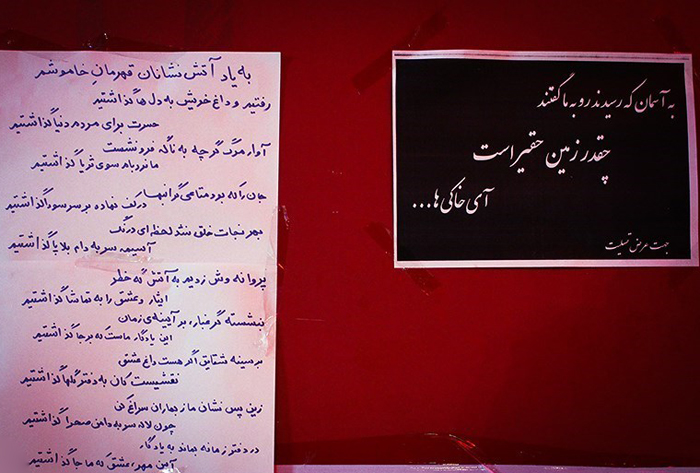 به یاد آتش نشانان قهرمانِ خاموشم
رفتید و داغ خویش به دل ها گذاشتید
حسرت برای مردم دنیا گذاشتید
آوار مرگ گرچه به ناگه فرو نشست
ما نردبام سوی ثریا گذاشتید
جان را که بود متاعی گرانبها
در کف نهاده بر سر سودا گذاشتید
بهر نجات خلق نشد لحظه ای درنگ
آسیمه سر به دام بلا پا گذاشتید
پروانه وش زدید به آتش که خطر
ایثار و عشق را به تماشا گذاشتید
ننشسته گر غبار، بر آیینه‌ی زمان
این یادگار ماست که برجا گذاشتید
بر سینه شقایق اگر هست داغ عشق
نقشیست کان به دفتر گلها گذاشتید
زین پس نشان ما ز بهاران سراغ کن
چون لاله سر به دامن صحرا گذاشتید
در دفتر زمانه بماند به یادگار
آیین مهر، عشق که ما جا گذاشتید
به آسمان که رسیدند رو به ما گفتند
چقدر زمین حقیر است
آی خاکی ها...
جهت عرض تسلیت